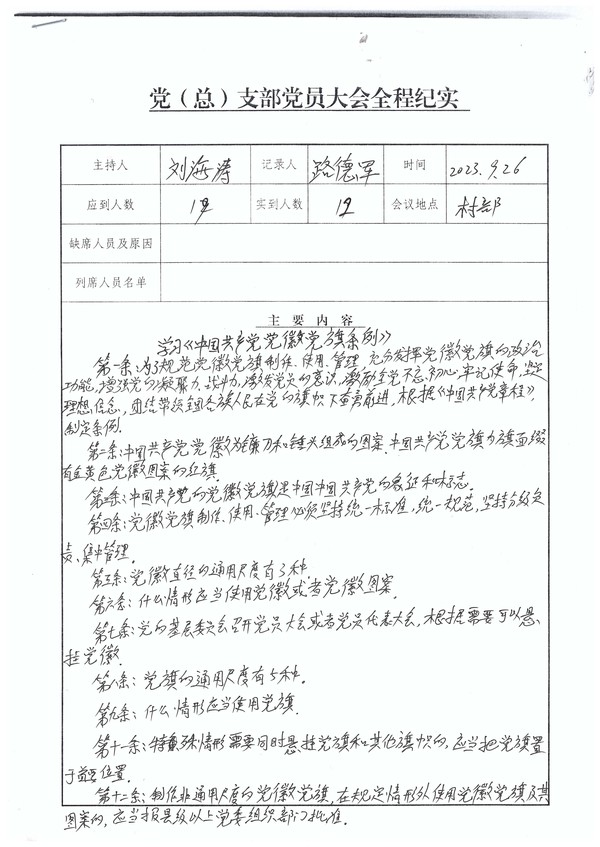 党（总）支部党员大会全程纪实
主持人 刘海涛 记录人 路德军 时间 2023.9.26
应到人数 实到人数 12 会议地点 村部
缺席人员及原因
列席人员名单
主要内容
学习《中国共产党党徽党旗条例》
第一条:为了规范党徽党旗制作、使用、管理,充分发挥党徽党旗的政治
功能,增强党的凝聚力、战斗力,激发党员的意识,激励全党不忘初心,牢记使命,坚定
理想信念,团结带领全国各族人民在党的旗帜下奋勇前进,根据《中国共产党章程》,
制定条例.
第二条:中国共产党党徽为镰刀和锤头组成的图案.中国共产党党旗为旗面缀
有金黄色党徽图案的红旗.
第三条:中国共产党的党徽党旗是中国中国共产党的象征和标志.
第四条:党徽党旗制作、使用、管理必须坚持统一标准,统一规范,坚持分级负
责、集中管理.
第五条:党徽直径的通用尺度有3种
第六条:什么情形应当使用党徽或者党徽图案.
第七条:党的基层委员会召开党员大会或者党员代表大会,根据需要可以悬
挂党徽.
第八条:党旗的通用尺度有5种.
第九条:什么情形应当使用党旗.
第十一条:特殊情形需要同时悬挂党旗和其他旗帜的,应当把党旗置
于首要位置.
第十二条:制作非通用尺度的党徽党旗,在规定情形外使用党徽党旗及其
图案的,应当报县级以上党委组织部门批准.